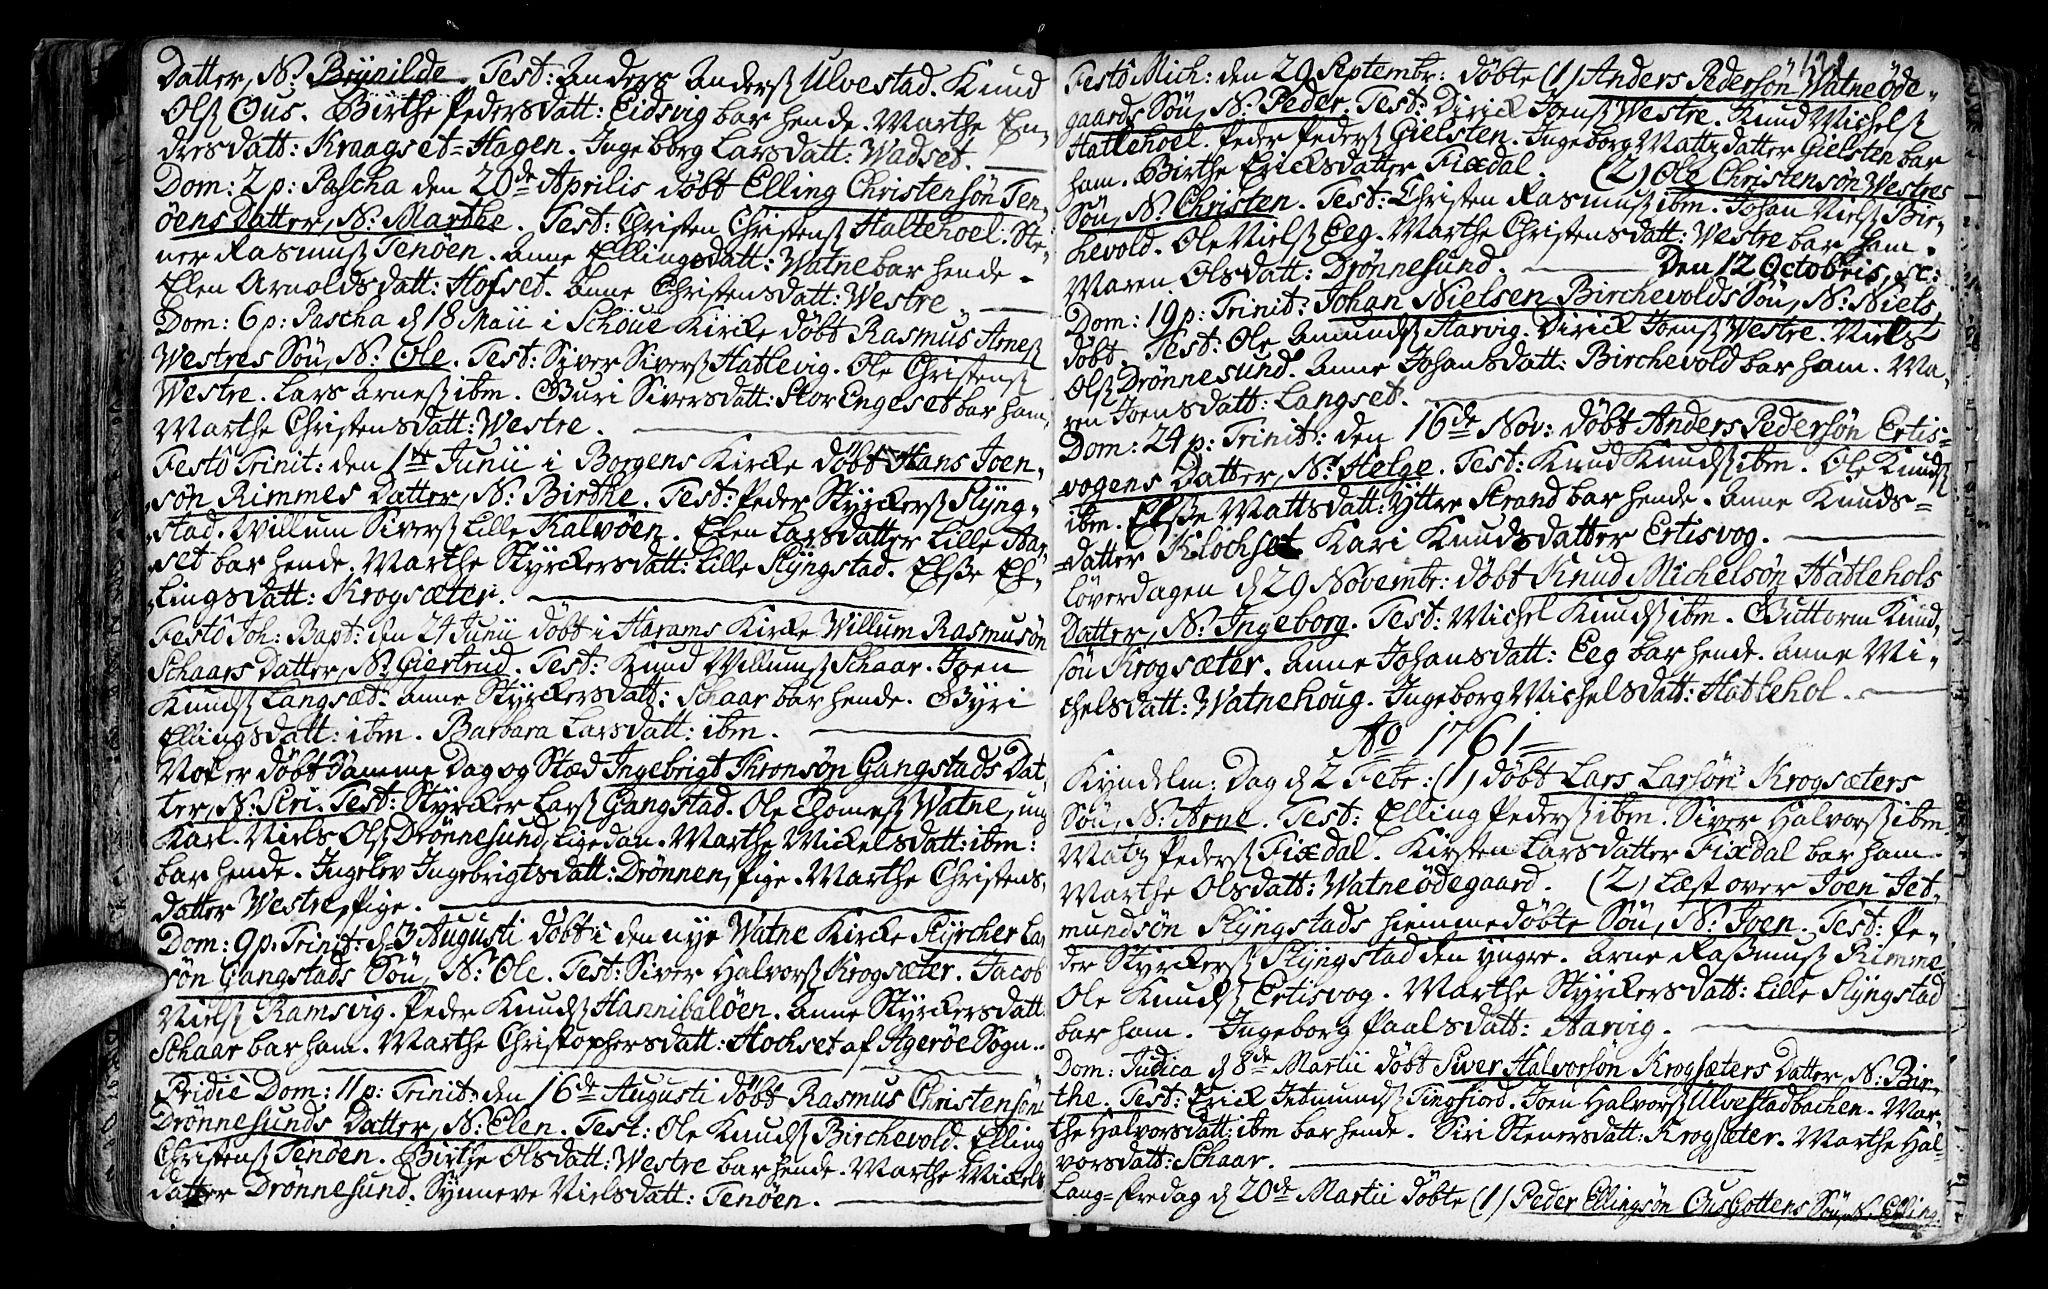 Datter, N: Brynilde. Test: Anders Andersß Ulvestad. Knud
Olsß Ous. Birthe Pedersdatt: Eidsvig bar hende. Marthe En-
dresdatt: Kraagset-Hagen. Ingeborg Larsdatt: Wadset.
Dom: 2 p: Pascha den 20de Aprilis døbt Elling Christensøn Ten-
øens Datter, N: Marthe. Test: Christen Christensß Haltehoel. Ste-
ner Rasmusß Tenøen. Anne Ellingsdatt: Watne bar hende.
Elen Arnoldsdatt: Hofset. Anne Christensdatt: Westre
Dom: 6 p: Pascha d 18 Maii i Schoue Kircke døbt Rasmus Arnesß
Westres Søn, N: Ole. Test: Siver Siversß Hatlevig. Ole Christensß
Westre. Lars Arnesß ibm. Guri Siversdatt: Stor Engeset bar ham.
Marthe Christensdatt: Westre.
Festo Trinit: den 1te Junii i Borgens Kircke døbt Hans Joen-
søn Rimmes Datter, N: Birthe. Test: Peder Styrckersß Slyng-
stad. Willum Siversß Lille Kalvøen. Elen Larsdatter Lille Aar-
set bar hende. Marthe Styrckersdatt: Lille Slyngstad. Elsße El-
lingsdatt: Krogsæter.
Festo Joh: Bapt: den 24 Junii døbt i Harams Kircke Willum Rasmusøn
Schaars Datter, N: Giertrud. Test: Knud Willumsß Schaar. Joen
Knudsß Langsæt. Anne Styrckersdatt: Schaar bar hende. Gyri
Ellingsdatt: ibm. Barbara Larsdatt: ibm.
Not er døbt samme Dag og Stæd Ingebrigt Thronsøn Gangstads Dat-
ter, N: Siri. Test: Styrcker Larsß Gangstad. Ole Elomesß Watne, ung
Karl. Niels Olsß Drønnesund, ligedan. Marthe Mickelsdatt: ibm:
bar hende. Ingelev Ingebrigtsdatt: Drønnen, Pige. Marthe Christens-
datter Westre, Pige.
Dom: 9 p: Trinit: d 3 Augusti døbt i den nye Watne Kircke Styrcher Lar-
søn Gangstads Søn, N: Ole. Test: Siver Halvorsß Krogsæter. Jacob
Nielsß Ramsvig. Peder Knudsß Hannibaløen. Anne Styrckersdatt:
Schaar bar ham. Marthe Christophersdatt: Hochset af Agerøe Sogn.
Pridie Dom: 11 p: Trinit: den 16de Augusti døbt Rasmus Christensøns
Drønnesunds Datter, N: Elen. Test: Ole Knudsß Birchevold. Elling
Christensß Tenøen. Birthe Olsdatt: Westre bar hende. Marthe Mickels
datter Drønnesund. Synneve Nielsdatt: Tenøen.
Festo Mich: den 29 Septembr: døbte (1) Anders Pedersøn Watneøde-
gaards Søn, N: Peder. Test: Dirick Joensß Westre. Knud Michelsß
Hatlehoel. Peder Pedersß Gielsten. Ingeborg Mattisdatter Gielsten bar
ham. Birthe Ericksdatter Fixdal. (2) Ole Christensøn Westres
Søn, N: Christen. Test: Christen Rasmusß ibm. Johan Nielsß Bir-
chevold. Ole Nielsß Eeg. Marthe Christensdatt: Westre bar ham.
Maren Olsdatt: Drønnesund. Den 12 Octobris, sc:
Dom: 19 p: Trinit: Johan Nielsen Birchevolds Søn, N: Niels
døbt. Test: Ole Amundsß Harvig. Dirick Joensß Westre. Niels
Olsß Drønnesund. Anne Johansdatt: Birchevold bar ham. Ma-
ren Joensdatt: Langset.
Dom: 24 p: Trinit: den 16de Nov: døbt Anders Pedersøn Ertis-
vogens Datter, N: Helge. Test: Knud Knudsß ibm. Ole Knudsß
ibm. Elsße Mattsdatt: Yttre Strand bar hende. Anne Knuds-
datter Klochset. Kari Knudsdatter Ertisvog.
Løverdagen d 29 Novembr: døbt Knud Michelsøn Hatlehols
Datter, N: Ingeborg. Test: Michel Knudsß ibm. Guttorm Knud-
søn Krogsæter. Anne Johansdatt: Eeg bar hende. Anne Mi-
chelsdatt: Watnehoug. Ingeborg Michelsdatt: Hatlehol.
Ao 1761
Kyndelm: Dag d 2 Febr: (1) døbt Lars Larsøn Krogsæters
Søn, N: Arne. Test: Elling Pedersß ibm. Siver Halvorsß ibm.
Matz Pedersß Fixdal. Kirsten Larsdatter Fixdal bar ham.
Marthe Olsdatt: Watneødegaard. (2) Læst over Joen Jet-
mundsøn Slyngstads hiemmedøbte Søn, N: Joen. Test: Pe-
der Styrckersß Slyngstad den yngre. Arne Rasmusß Rimme.
Ole Knudsß Ertisvog. Marthe Styrckersdatt: Lille Slyngstad
bar ham. Ingeborg Paalsdatt: Harvig.
Dom: Judica d 8de Martii døbt Siver Halvorsøn Krogsæters Datter, N: Bir-
the. Test: Erick Jetmundsß Tingfiord. Joen Halvorsß Ulvestadbachen. Mar-
the Halvorsdatt: ibm bar hende. Siri Stenersdatt: Krogsæter. Marthe Hal-
vorsdatt: Schaar.
Lang-Fredag d 20de Martii døbte (1) Peder Ellingsøn Ous Gottens Søn, N: Elling.